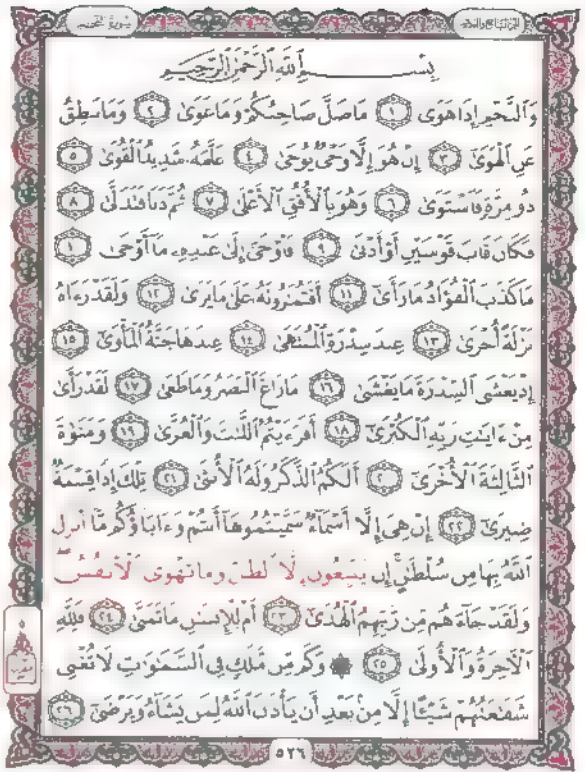 سورة النجم
الجزء السابع والعشرون
بِسْمِ اللَّهِ الرَّحْمَٰنِ الرَّحِيمِ
وَالنَّجْمِ إِذَا هَوَىٰ ١ مَا ضَلَّ صَاحِبُكُمْ وَمَا غَوَىٰ ٢ وَمَا يَنطِقُ
عَنِ الْهَوَىٰ ٣ إِنْ هُوَ إِلَّا وَحْيٌ يُوحَىٰ ٤ عَلَّمَهُ شَدِيدُ الْقُوَىٰ ٥
ذُو مِرَّةٍ فَاسْتَوَىٰ ٦ وَهُوَ بِالْأُفُقِ الْأَعْلَىٰ ٧ ثُمَّ دَنَا فَتَدَلَّىٰ ٨
فَكَانَ قَابَ قَوْسَيْنِ أَوْ أَدْنَىٰ ٩ فَأَوْحَىٰ إِلَىٰ عَبْدِهِ مَا أَوْحَىٰ ١٠
مَا كَذَبَ الْفُؤَادُ مَا رَأَىٰ ١١ أَفَتُمَارُونَهُ عَلَىٰ مَا يَرَىٰ ١٢ وَلَقَدْ رَءَاهُ
نَزْلَةً أُخْرَىٰ ١٣ عِندَ سِدْرَةِ الْمُنتَهَىٰ ١٤ عِندَهَا جَنَّةُ الْمَأْوَىٰ ١٥
إِذْ يَغْشَى السِّدْرَةَ مَا يَغْشَىٰ ١٦ مَا زَاغَ الْبَصَرُ وَمَا طَغَىٰ ١٧ لَقَدْ رَأَىٰ
مِنْ ءَايَاتِ رَبِّهِ الْكُبْرَىٰ ١٨ أَفَرَءَيْتُمُ اللَّاتَ وَالْعُزَّىٰ ١٩ وَمَنَوٰةَ
الثَّالِثَةَ الْأُخْرَىٰ ٢٠ أَلَكُمُ الذَّكَرُ وَلَهُ الْأُنثَىٰ ٢١ تِلْكَ إِذًا قِسْمَةٌ
ضِيزَىٰ ٢٢ إِنْ هِيَ إِلَّا أَسْمَاءٌ سَمَّيْتُمُوهَا أَنتُمْ وَءَابَاؤُكُم مَّا أَنزَلَ
اللَّهُ بِهَا مِن سُلْطَانٍ إِن يَتَّبِعُونَ إِلَّا الظَّنَّ وَمَا تَهْوَى الْأَنفُسُ
وَلَقَدْ جَاءَهُم مِّن رَّبِّهِمُ الْهُدَىٰ ٢٣ أَمْ لِلْإِنسَانِ مَا تَمَنَّىٰ ٢٤ فَلِلَّهِ
الْآخِرَةُ وَالْأُولَىٰ ٢٥ ۞ وَكَم مِّن مَّلَكٍ فِي السَّمَاوَاتِ لَا تُغْنِي
شَفَاعَتُهُمْ شَيْئًا إِلَّا مِن بَعْدِ أَن يَأْذَنَ اللَّهُ لِمَن يَشَاءُ وَيَرْضَىٰ ٢٦
٥٢٦